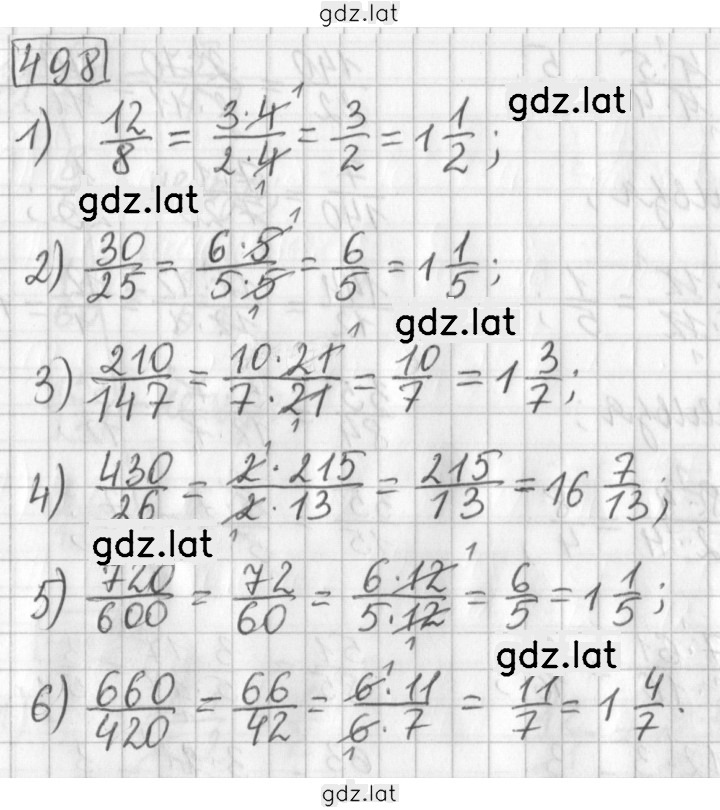 gdz.lat
498
gdz.lat
1) 12/8 = 3·4/2·4 = 3/2 = 1 1/2;
gdz.lat
2) 30/25 = 6·5/5·5 = 6/5 = 1 1/5;
gdz.lat
3) 210/147 = 10·21/7·21 = 10/7 = 1 3/7;
4) 430/26 = 2·215/2·13 = 215/13 = 16 7/13;
gdz.lat
5) 720/600 = 72/60 = 6·12/5·12 = 6/5 = 1 1/5;
gdz.lat
6) 660/420 = 66/42 = 6·11/6·7 = 11/7 = 1 4/7.
gdz.lat